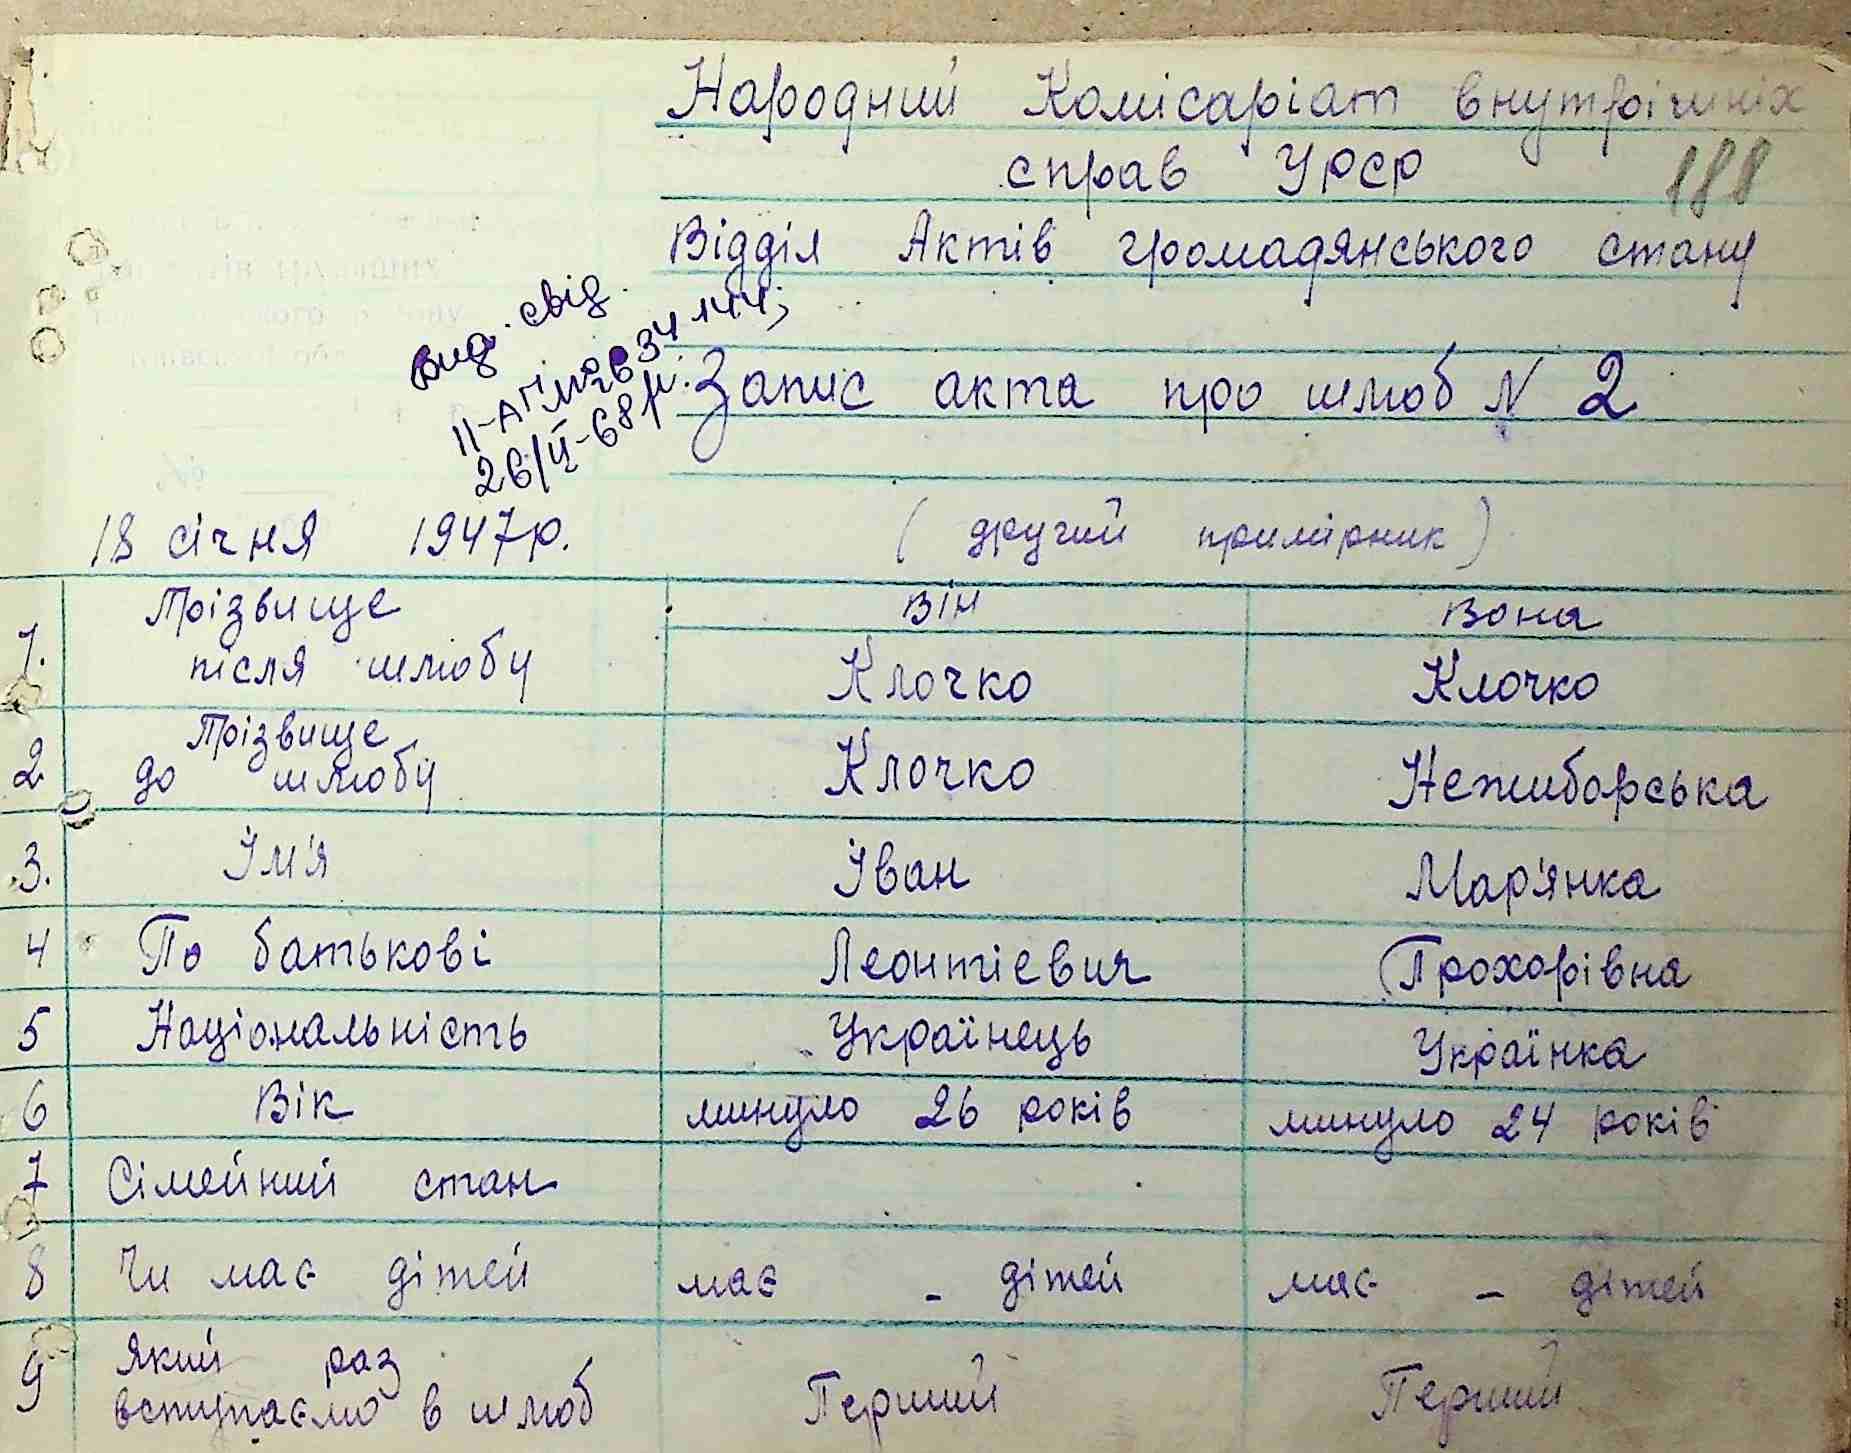 Народний Комісаріат внутрішніх
справ УРСР
188
Відділ Актів громадянського стану
вид. свід.
II-АП №
26/II-68 р.
Запис акта про шлюб N 2
18 січня 1947р.
(другий примірник)
1. Прізвище після шлюбу
Він
Вона
Клочко
Клочко
2 Прізвище до шлюбу
Клочко
Нежиборська
3. Ім'я
Іван
Мар'янка
4 По батькові
Леонтіевич
Прохорівна
5 Національність
Українець
Українка
6 Вік
минуло 26 років
минуло 24 років
7 Сімейний стан
8 Чи має дітей
має - дітей
має - дітей
9 Який раз
вступаємо в шлюб
Перший
Перший